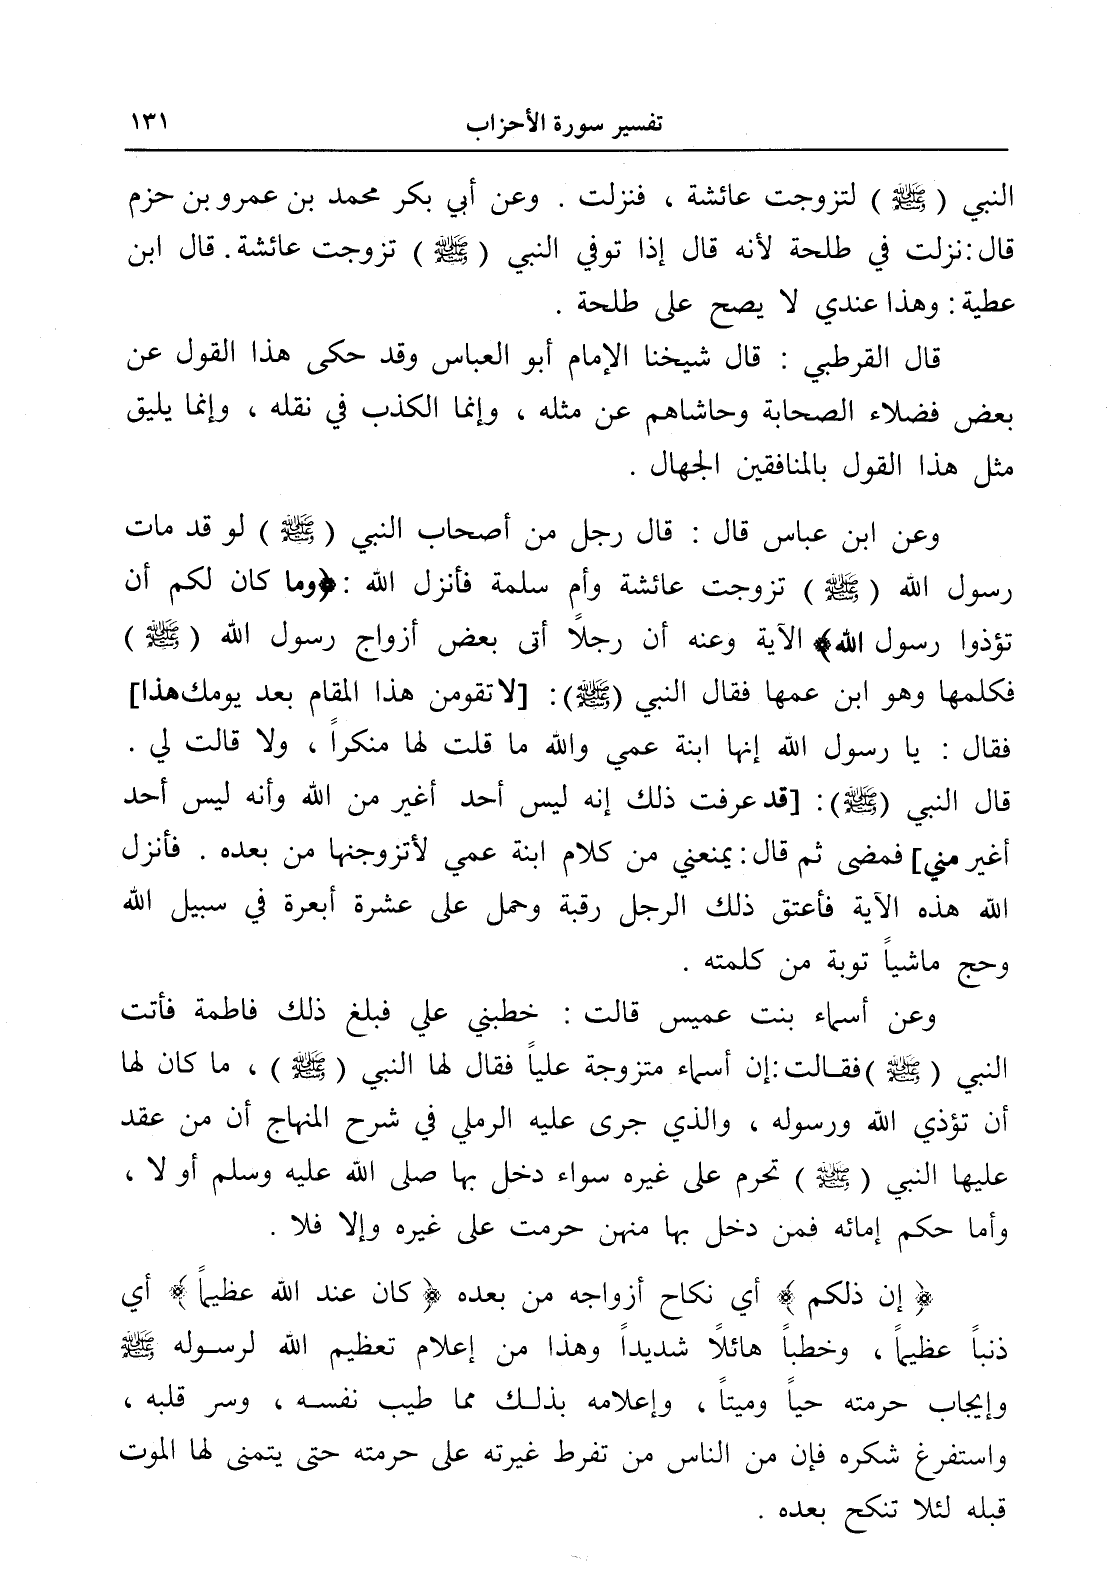 تفسير سورة الأحزاب ١٣١
النبي ( ﷺ ) لتزوجت عائشة ، فنزلت . وعن أبي بكر محمد بن عمرو بن حزم
قال : نزلت في طلحة لأنه قال إذا توفي النبي ( ﷺ ) تزوجت عائشة . قال ابن
عطية : وهذا عندي لا يصح على طلحة .
قال القرطبي : قال شيخنا الإمام أبو العباس وقد حكى هذا القول عن
بعض فضلاء الصحابة وحاشاهم عن مثله ، وإنما الكذب في نقله ، وإنما يليق
مثل هذا القول بالمنافقين الجهال .
وعن ابن عباس قال : قال رجل من أصحاب النبي ( ﷺ ) لو قد مات
رسول الله ( ﷺ ) تزوجت عائشة وأم سلمة فأنزل الله : ﴿وما كان لكم أن
تؤذوا رسول الله﴾ الآية وعنه أن رجلاً أتى بعض أزواج رسول الله ( ﷺ )
فكلمها وهو ابن عمها فقال النبي (ﷺ): [لا تقومن هذا المقام بعد يومك هذا]
فقال : يا رسول الله إنها ابنة عمي والله ما قلت لها منكراً ، ولا قالت لي .
قال النبي (ﷺ): [قد عرفت ذلك إنه ليس أحد أغير من الله وأنه ليس أحد
أغير مني] فمضى ثم قال : يمنعني من كلام ابنة عمي لأتزوجنها من بعده . فأنزل
الله هذه الآية فأعتق ذلك الرجل رقبة وحمل على عشرة أبعرة في سبيل الله
وحج ماشياً توبة من كلمته .
وعن أسماء بنت عميس قالت : خطبني علي فبلغ ذلك فاطمة فأتت
النبي ( ﷺ ) فقالت : إن أسماء متزوجة علياً فقال لها النبي ( ﷺ ) ، ما كان لها
أن تؤذي الله ورسوله ، والذي جرى عليه الرملي في شرح المنهاج أن من عقد
عليها النبي ( ﷺ ) تحرم على غيره سواء دخل بها صلى الله عليه وسلم أو لا ،
وأما حكم إمائه فمن دخل بها منهن حرمت على غيره وإلا فلا .
﴿ إن ذلكم ﴾ أي نكاح أزواجه من بعده ﴿ كان عند الله عظيماً ﴾ أي
ذنباً عظيماً ، وخطباً هائلاً شديداً وهذا من إعلام تعظيم الله لرسوله ﷺ
وإيجاب حرمته حياً وميتاً ، وإعلامه بذلك مما طيب نفسه ، وسر قلبه ،
واستفرغ شكره فإن من الناس من تفرط غيرته على حرمته حتى يتمنى لها الموت
قبله لئلا تنكح بعده .